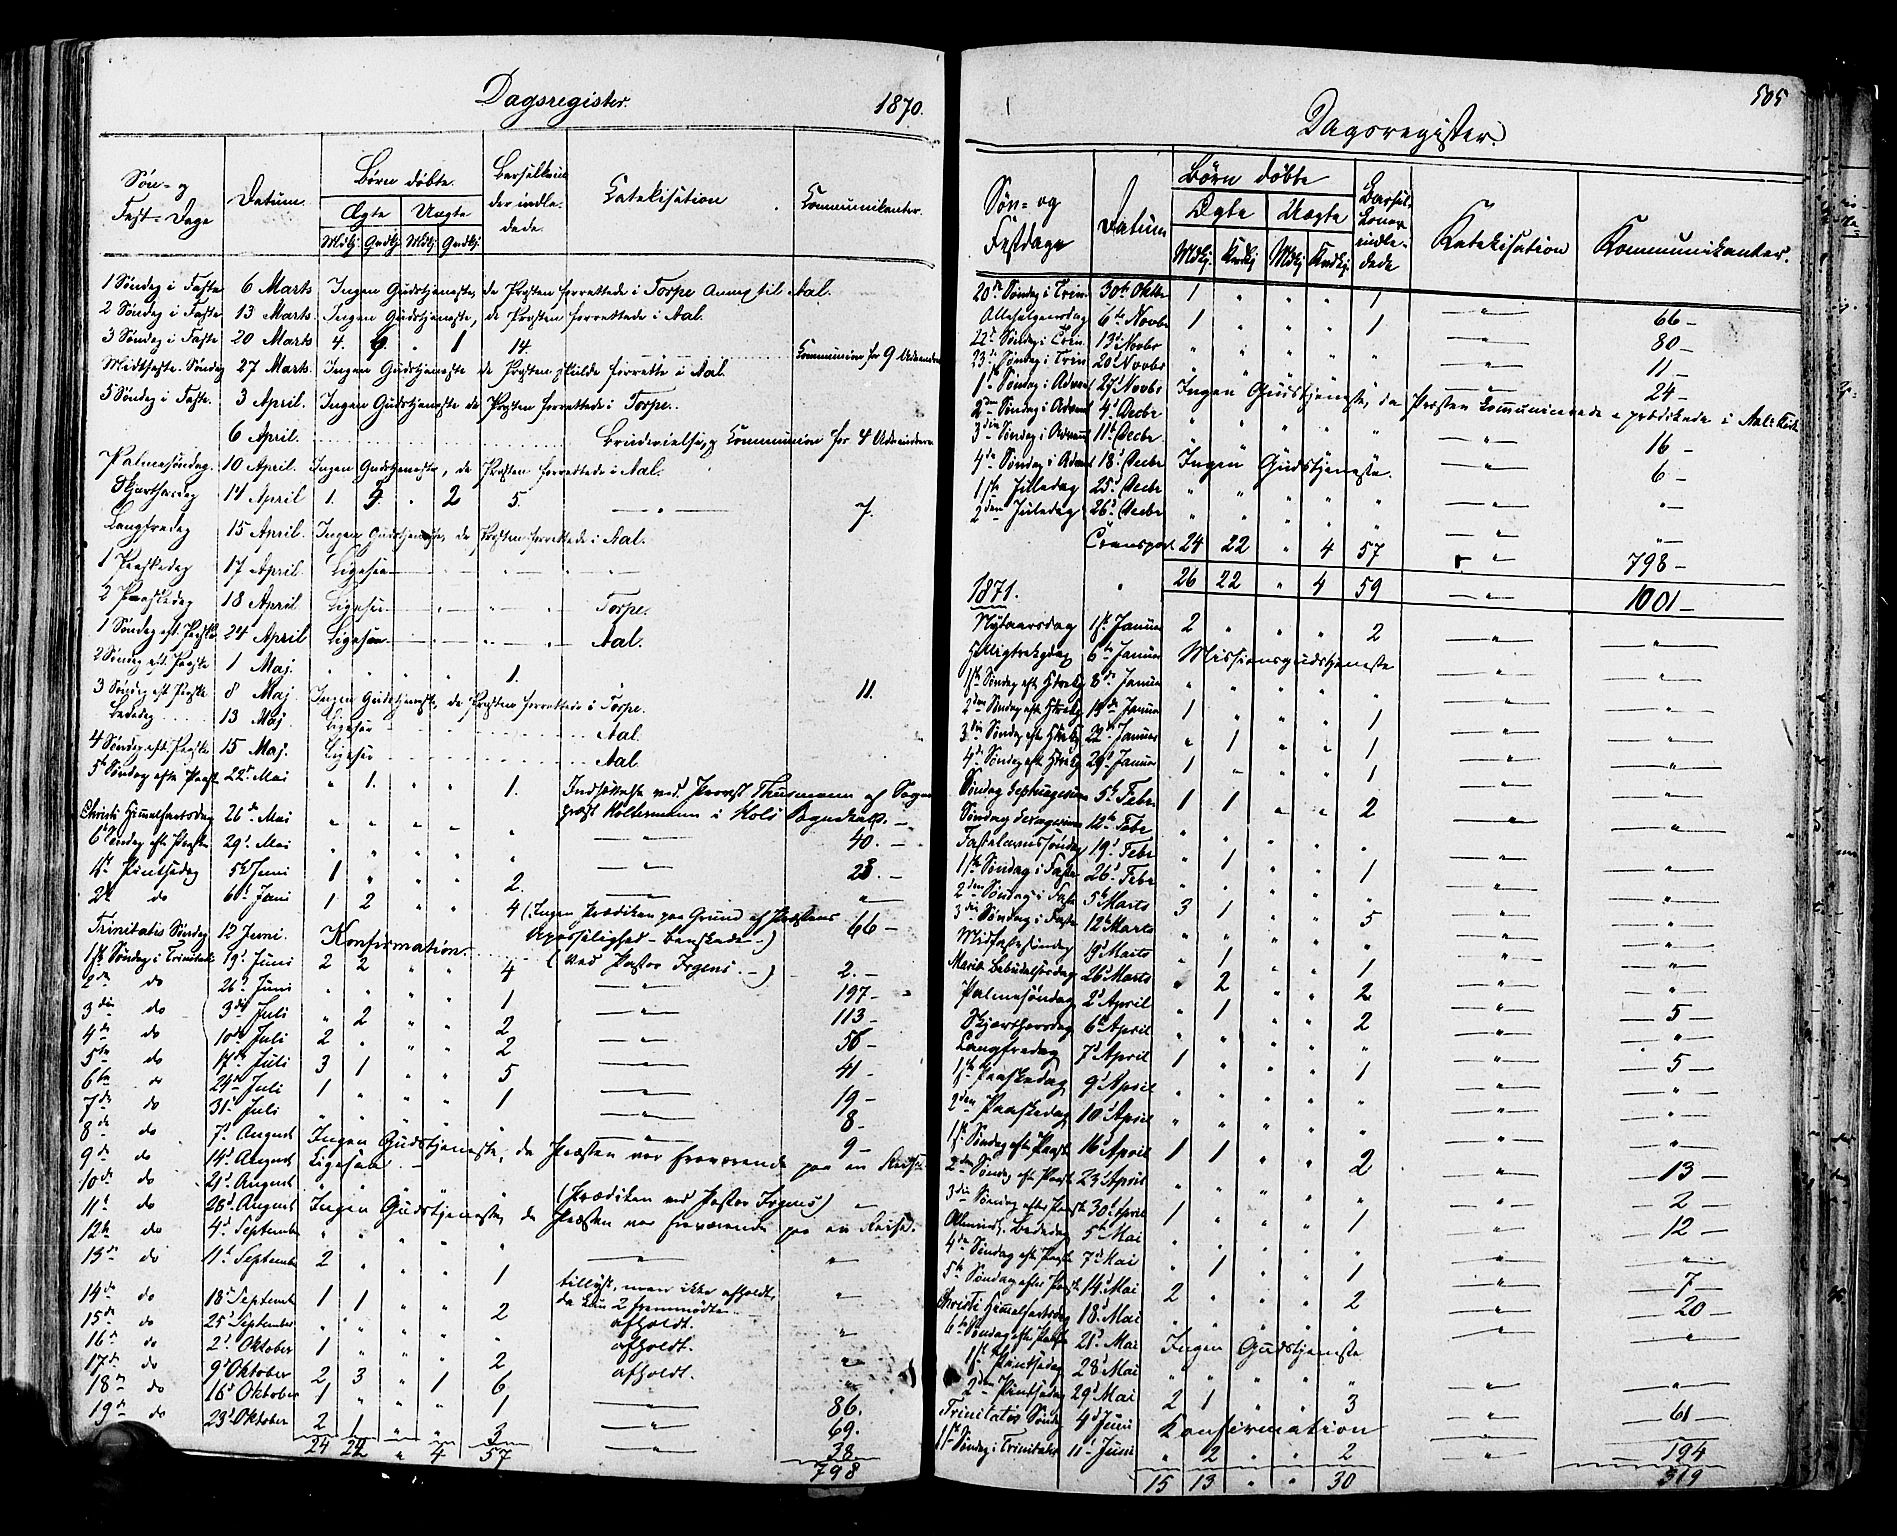 Dagsregister.
1870.
Søn- og Fest-Dage | Datum. | Børn døbte. | Barselkvin der indle dede. | Katekisation | Kommunikanter.
Ægte | Uægte
Mdkj. Qvdkj. Mdkj. Qvdkj.
1 Søndag i Faste 6 Marts Ingen Gudstjeneste, da Præsten forrettede i Torpe Annex til Aal.
2 Søndag i Faste 13 Marts. Ingen Gudstjeneste, da Præsten forrettede i Aal.
3 Søndag i Faste 20 Marts 4. 9. " 1 14. Kommunion for 9
Midtfaste-Søndag 27 Marts. Ingen Gudstjeneste da Præsten skulde forrette i Aal.
5 Søndag i Faste. 3 April. Ingen Gudstjeneste da Præsten forrettede i Torpe.
6 April. Brudevielse, og Kommunion for 4
Palmesøndag. 10 April. Ingen Gudstjeneste, da Præsten forrettede i Aal.
Skjærthorsdag 14 April 1. 9. " 2 5. — " — 7.
Langfredag 15 April. Ingen Gudstjeneste, da Præsten forrettede i Aal.
1 Paaskedag 17 April Ligesaa — " — " —
2 Paaskedag 18 April Ligesaa — " — " — Torpe.
1 Søndag eft. Paaske 24 April Ligesaa — " — " — Aal.
2 Søndag eft. Paaske 1 Maj. " " " " 1. " 11.
3 Søndag eft Paaske 8 Maj Ingen Gudstjeneste, da Præsten forrettede i Torpe.
Bededag 13 Maj Ligesaa Aal.
4 Søndag eft. Paaske 15 Maj. Ligesaa Aal.
5te Søndag efter Paaske 22de Mai " 1. " " 1. Indsættelse ved Provst Thesmann af Sogne
Christi Himmelfartsdag 26de Mai " " " " " præst Holtermann i Hols Præstekald. —
6te Søndag efter Paaske 29d. Mai " " " " " — " — 40. —
1ste Pintsedag 5te Juni 1 " " " 2. — " — 23. —
2de do 6te Juni 1 2 " " 4 (Ingen Prædiken paa Grund af Præstens "
Trinitatis Søndag 12 Juni. Konfirmation. Upasselighed — 66 —
1ste Søndag i Trinitatis 19d. Juni 2 2 " " 4 (ved Pastor Irgens. —) 2. —
2de do 26d. Juni " " " " 1 — " — 197 —
3die do 3die Juli " 2 " " 2 — " — 113 —
4de do 10de Juli 2 " " " 2 — " — 56 —
5te do 17de Juli 3 1 " " 5 — " — 41 —
6te do 24de Juli 1 " " " 1 — " — 19 —
7de do 31d. Juli " " " " " — " — 8 —
8de do 7d. August Ingen Gudstjeneste, da Præsten var fraværende paa en Reise. 9 —
9de do 14d. August Ligesaa —
10de do 21d. August " " " " " (Prædiken ved Pastor Irgens) —
11te do 28d. August Ingen Gudstjeneste, da Præsten var fraværende paa en Reise.
12te do 4d. September " " " " " — " —
13de do 11te September 2 " " " 1 tillyst, men ikke afholdt, "
14de do 18d. September 1 1 " " 2 da kun 2 fremmødte. "
15de do 25d. September " " " " " afholdt. "
16de do 2d. Oktober 1 " " " 2 afholdt. "
17de do 9d. Oktober 2 3 " 1 6 afholdt. "
18de do 16d. Oktober 1 " " " 1 — " — 86.
19de do 23d. Oktober 2 1 " " 3 — " — 69.
24 22 " 4 57 — " — 38.
798
505
Dagsregister.
Søn- og Festdage | Datum | Børn døbte | Barselkoner indledede | Katekisation | Kommunikanter.
Ægte | Uægte
Mdkj. Kvdkj Mdkj Kvdkj.
20de Søndag i Trin. 30te Oktbr 1 " " " 1 — " — 66 —
Allehelgensdag 6te Novbr 1 " " " 1 — " — 80 —
22d Søndag i Trin. 13d. Novbr " " " " " — " — 11 —
23die Søndag i Trin 20d. Novbr " " " " " — " — 24 —
1ste Søndag i Advent 27d. Novbr Ingen Gudstjeneste, da Præsten kommunicerede og prædikede i Aals Kirke
2den Søndag i Advent 4d. Decbr " " " " " — " — 16 —
3die Søndag i Advent 11te Decbr. " " " " " — " — 6 —
4de Søndag i Advent 18d. Decbr Ingen Gudstjeneste.
1ste Juledag 25d. Decbr " " " " " — " — " —
2den Juledag 26d. Decbr " " " " " — " — " —
Transport 24 22 " 4 57 — " — 798 —
26 22 " 4 59 — " — 1001 —
1871.
Nytaarsdag 1ste Januar 2 " " " 2 — " — — " —
Helligtrekgdag 6te Januar Missionsgudstjeneste — " — — " —
1ste Søndag efter Htrekg 8de Januar " " " " " — " — — " —
2den Søndag efter Htrekg 15de Januar 1 " " " 1 — " — — " —
3die Søndag efter Htrekg 22de Januar " 1 " " 1 — " — — " —
4de Søndag efter Htrekg 29d. Januar 1 " " " 1 — " — — " —
Søndag Septuagesima 5te Febr. 1 1 " " 2 — " — — " —
Søndag Sexagesima 12te Febr " " " " " — " — — " —
Fastelavnssøndag 19d. Febr " 1 " " 1 — " — — " —
1ste Søndag i Faste 26d. Febr " " " " " — " — — " —
2den Søndag i Faste 5te Marts 3 1 " " 5 — " — — " —
3die Søndag i Faste 12te Marts " " " " " — " — — " —
Midfastesøndag 19d. Marts " 1 " " 1 — " — — " —
Mariæ Bebudelsesdag 26d. Marts " 2 " " 2 — " — — " —
Palmesøndag 2d. April " 1 " " 2 — " — — 5 —
Skjærthorsdag 6te April " " " " " — " — — " —
Langfredag 7d. April 1 " " " 1 — " — — 5 —
1ste Paaskedag 9d. April " " " " " — " — — " —
2den Paaskedag 10d. April " " " " " — " — — " —
1ste Søndag efter Paask. 16d. April 1 1 " " 2 — " — — " —
2den Søndag eft Paask 23d. April " " " " " — " — — 13 —
3die Søndag efter Paask 30d. April 1 " " " 1 — " — — 2 —
Almind. Bededag 5te Mai " " " " " — " — — 12 —
4de Søndag efter Paask 7d. Mai " 1 " " 1 — " — — " —
5te Søndag efter Paask 14d. Mai 2 " " " 2 — " — — 7 —
Christi Himmelfartsdag 18d. Mai " " " " " — " — — 20 —
6te Søndag eft Paask 21d. Mai Ingen Gudstjeneste — " —
1ste Pintsedag 28d. Mai " " " " " — " — — " —
2den Pintsedag 29d. Mai 2 1 " " 3 — " — — 61 —
Trinitatis Søndag 4d. Juni Konfirmation — " —
1ste Søndag i Trinitatis 11te Juni " 2 " " 2 — " — — 194
15 13 " " 30 319